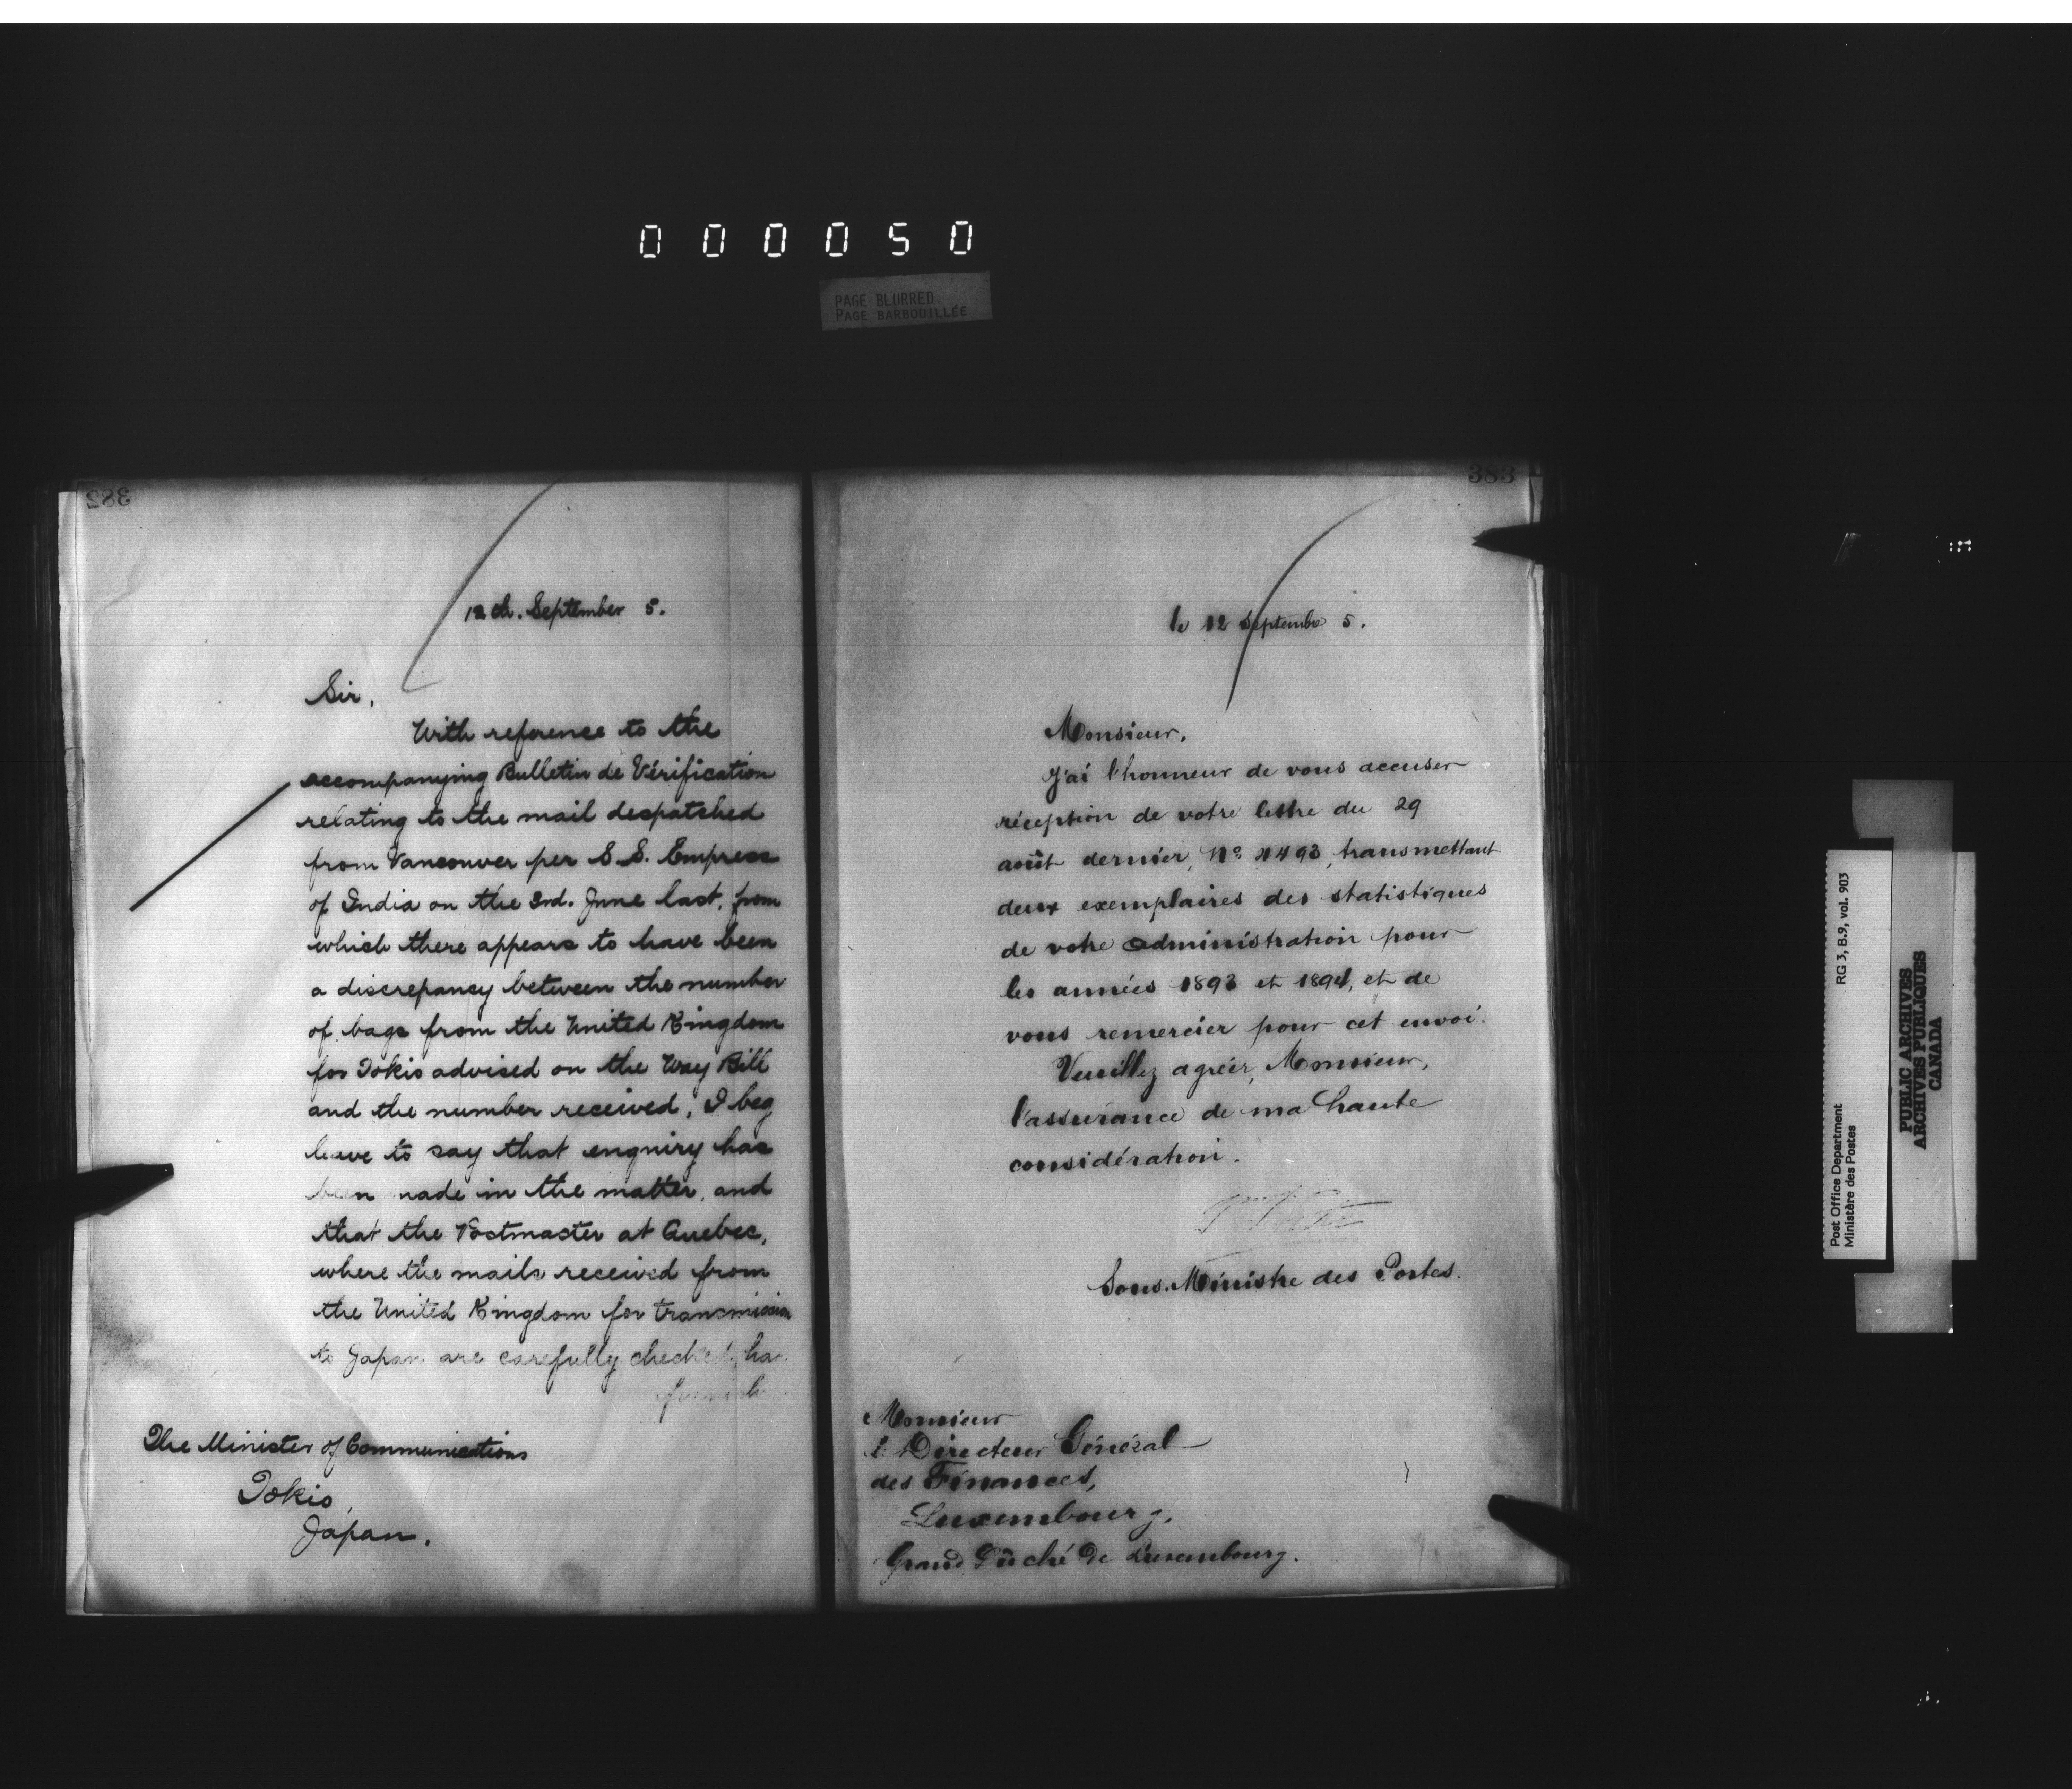 000050
PAGE BLURRED
PAGE BARBOUILLÉE
382
12th. September 5.
Sir,
With reference to the
accompanying Bulletin de Vérification
relating to the mail despatched
from Vancouver per S.S. Empress
of India on the 3rd. June last, from
which there appears to have been
a discrepancy between the number
of bags from the United Kingdom
for Tokio advised on the Way Bill
and the number received, I beg
leave to say that enquiry has
been made in the matter, and
that the Postmaster at Quebec,
where the mails received from
the United Kingdom for transmission
to Japan are carefully checked, has
The Minister of Communications
Tokio,
Japan.
383
le 12 Septembre 5.
Monsieur,
J'ai l'honneur de vous accuser
réception de votre lettre du 29
août dernier, No. 1493, transmettant
deux exemplaires des statistiques
de votre administration pour
les années 1893 et 1894, et de
vous remercier pour cet envoi.
Veuillez agréer, Monsieur,
l'assurance de ma haute
considération.
Sous-Ministre des Postes.
Monsieur
le Directeur Général
des Finances,
Luxembourg,
Grand Duché de Luxembourg.
Post Office Department
Ministère des Postes
RG 3, B.9, vol. 903
PUBLIC ARCHIVES
ARCHIVES PUBLIQUES
CANADA